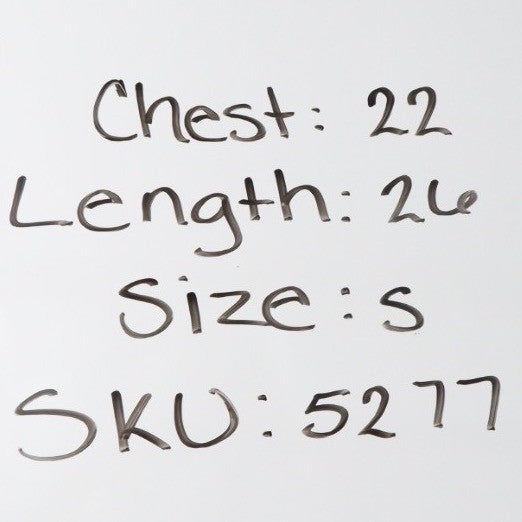 Chest: 22
Length: 26
Size: s
SKU: 5277